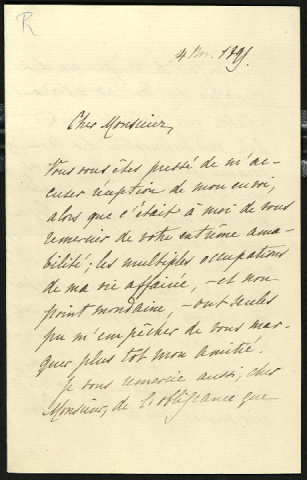 R
4 Nov. 1895
Cher Monsieur,
Vous vous êtes pressé de m'ac-
cuser réception de mon envoi,
alors que c'était à moi de vous
remercier de votre extrême ama-
bilité ; les multiples occupations
de ma vie affairée, - et non
point mondaine, - ont seules
pu m'empêcher de vous mar-
quer plus tôt mon amitié.
Je vous remercie aussi, cher
Monsieur, de l'obligeance que